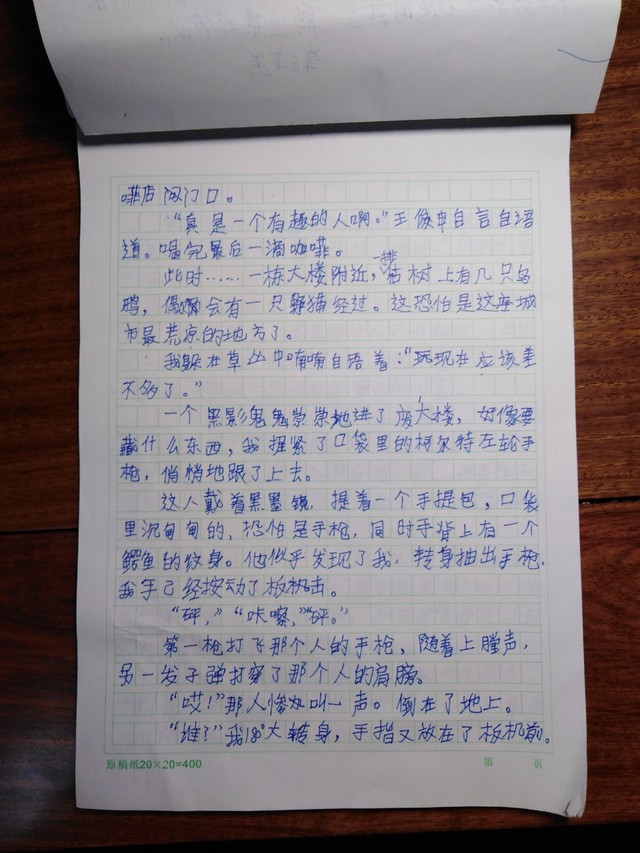 啡店的门口。
“真是一个有趣的人啊。”王俊申自言自语
道。喝完最后一滴咖啡。
此时……一栋大楼附近，一排枯树上有几只乌
鸦，偶尔会有一只野猫经过。这恐怕是这座城
市最荒凉的地方了。
我躲在草丛中喃喃自语着：“现在应该差
不多了。”
一个黑影鬼鬼祟祟地进了废大楼，好像要
藏什么东西，我握紧了口袋里的柯尔特左轮手
枪，俏悄地跟了上去。
这人戴着黑墨镜，提着一个手提包，口袋
里沉甸甸的，恐怕是手枪，同时手背上有一个
鳄鱼的纹身。他似乎发现了我，转身抽出手枪，
我手已经按动了板机击。
“砰，”“咔嚓，”“砰。”
第一枪打飞那个人的手枪，随着上膛声，
另一发子弹打穿了那个人的肩膀。
“哎！”那人惨叫一声。倒在了地上。
“谁？”我180°大转身，手指又放在了板机前。
原稿纸20×20=400
第 页